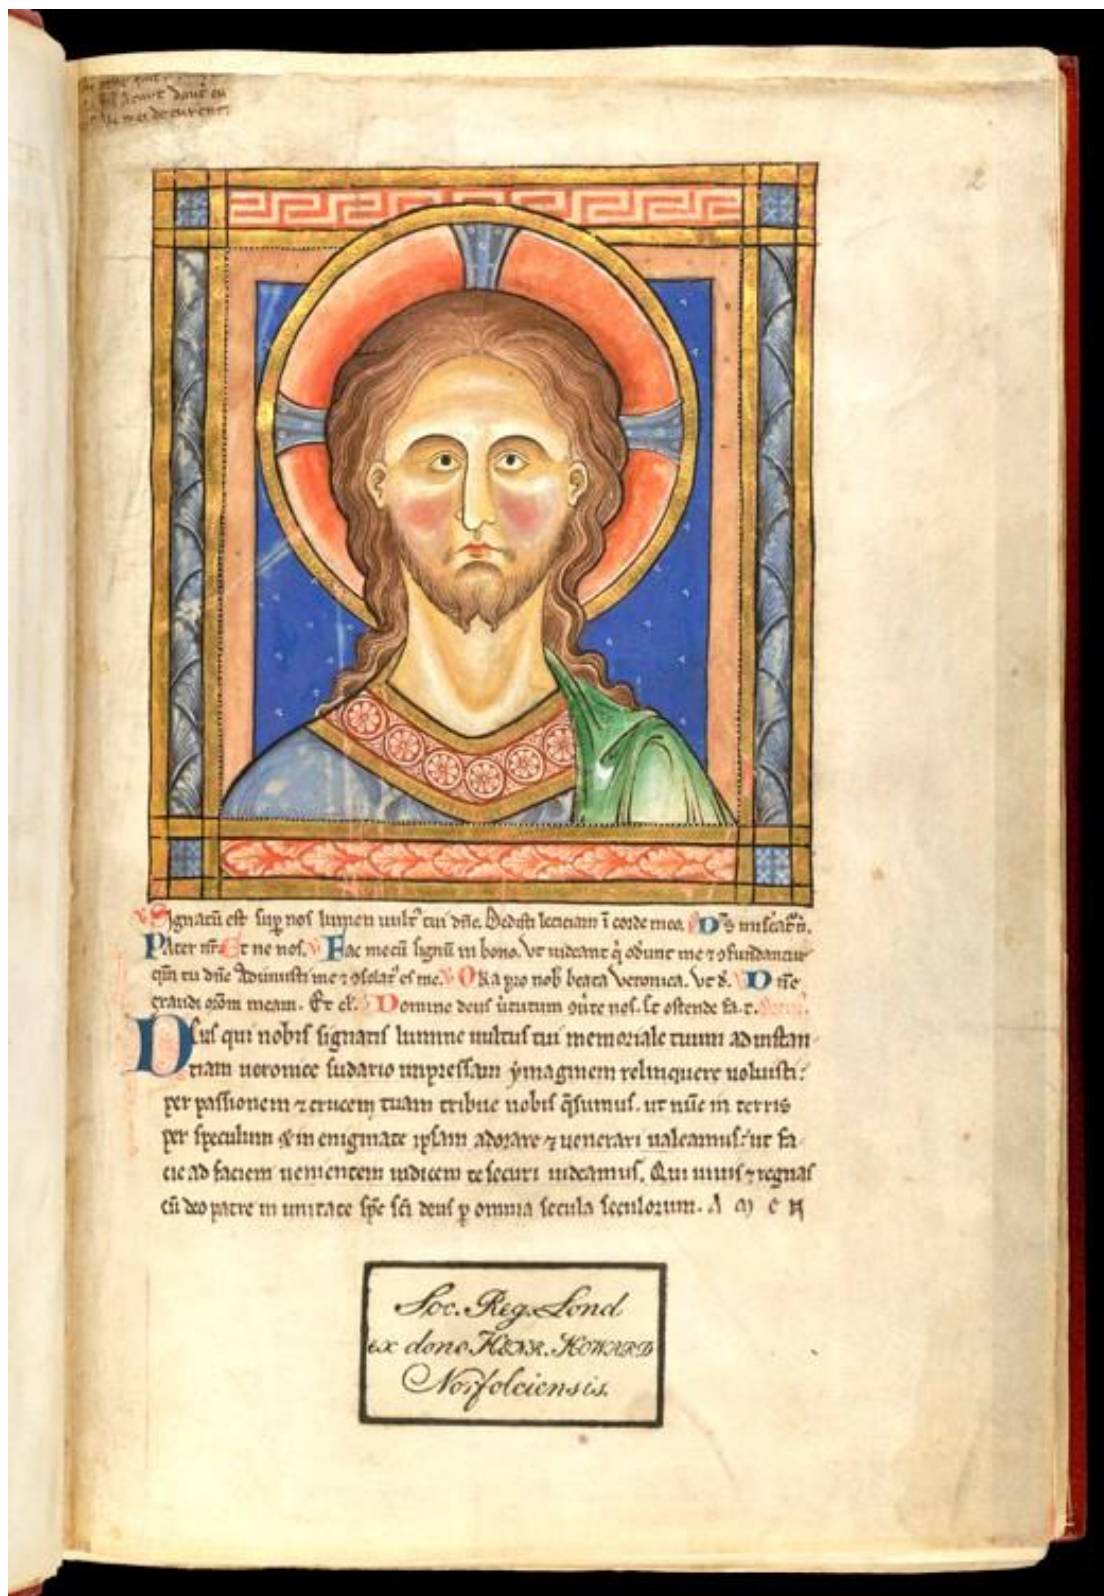 2
Signatū est sup nos lumen uult' tui dñe. Dedisti leticiam ī corde meo. Ds miseat' n.
Pater nr Et ne nos. Fac mecū signū in bono. Vt uideant q̇ oderunt me ⁊ ɔfundantur
qm̄ tu dñe adiuuisti me ⁊ ɔsolat' es me. ORa pro nob beata veronica. Vt d. Dñe
exaudi orōm meam. Et cl'. Domine deus uirtutum ɔu'te nos. Et ostende fa. t.
Deus qui nobis signatis lumine uultus tui memoriale tuum ad instan
tiam ueronice sudario impressam ẏmaginem relinquere uoluisti:
per passionem ⁊ crucem tuam tribue nobis q̄sumus. ut nūc in terris
per speculum & in enigmate ipsam adorare ⁊ uenerari ualeamus: ut fa
cie ad faciem uenientem iudicem te securi uideamus. Qui uiuis ⁊ regnas
cū deo patre in unitate spc sci deus p omnia secula seculorum. A M E N
Soc. Reg. Lond
ex dono HENR. HOWARD
Norfolciensis.